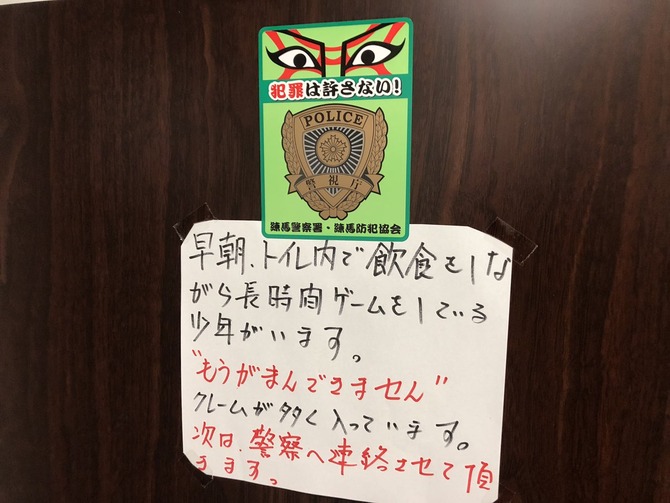 犯罪は許さない!
POLICE
警視庁
練馬警察署・練馬防犯協会
早朝、トイレ内で飲食をしな
がら長時間ゲームをしている
少年がいます。
"もうがまんできません"
クレームが多く入っています。
次は、警察へ連絡させて頂
きます。